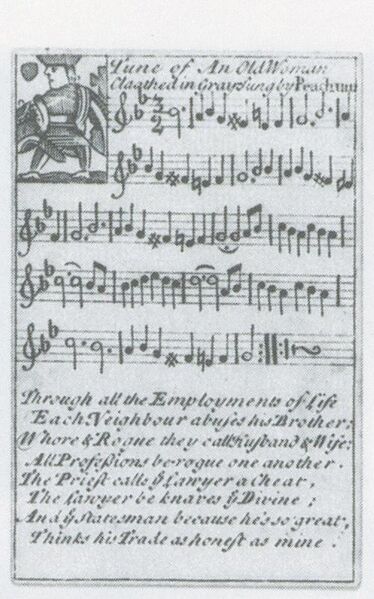 Tune of An Old Woman
Cloathed in Gray Sung by Peachum
3
2
Through all the Employments of Life
Each Neighbour abuſes his Brother;
Whore & Rogue they call Huſband & Wife;
All Profeſsions be-rogue one another.
The Prieſt calls ẙ Lawyer a Cheat,
The Lawyer be knaves ẙ Divine;
And ẙ Statesman because he's so great,
Thinks his Trade as honeſt as mine.